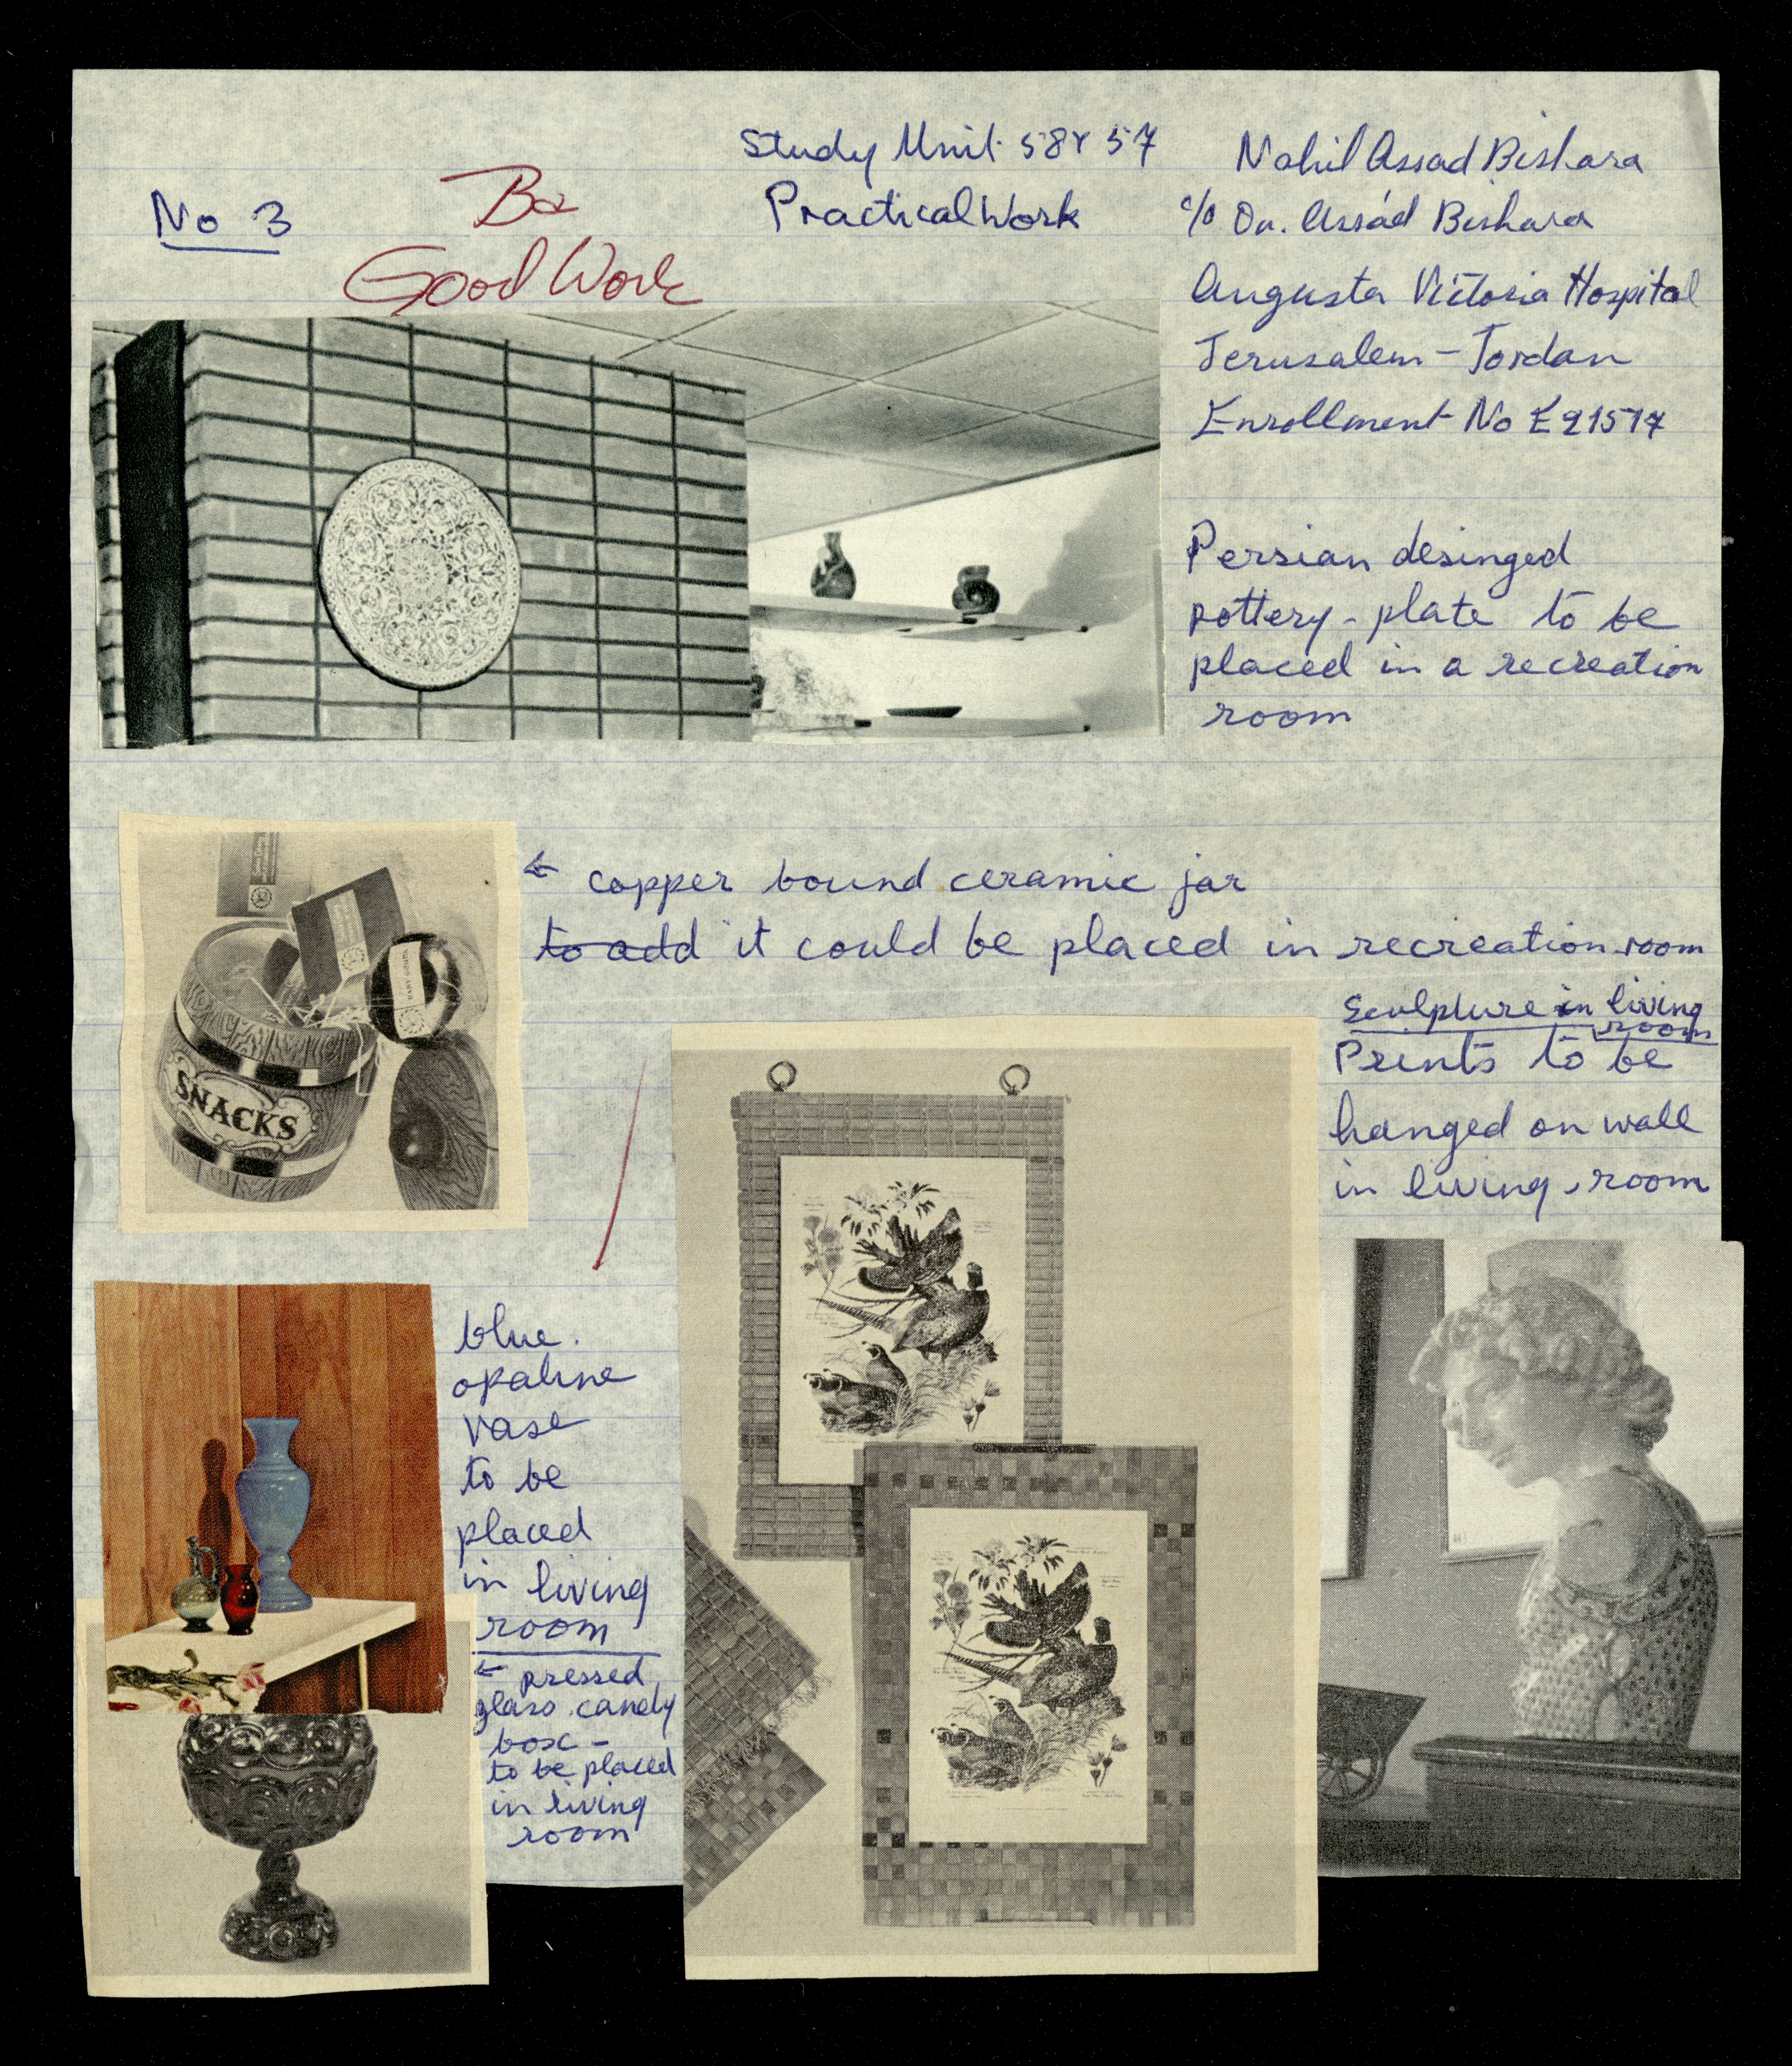 Study Unit 58 Y 57
Practical Work
No 3
Good Work
Nahil Assad Bishara
c/o Dr. Assad Bishara
Augusta Victoria Hospital
Jerusalem - Jordan
Enrollment No E 21517
Persian desinged
pottery - plate to be
placed in a recreation
room
← copper bound ceramic jar
to add it could be placed in recreation room
SNACKS
Sculpture in living
room
Prints to be
hanged on wall
in living room
blue
opaline
vase
to be
placed
in living
room
← pressed
glass candy
box -
to be placed
in living
room